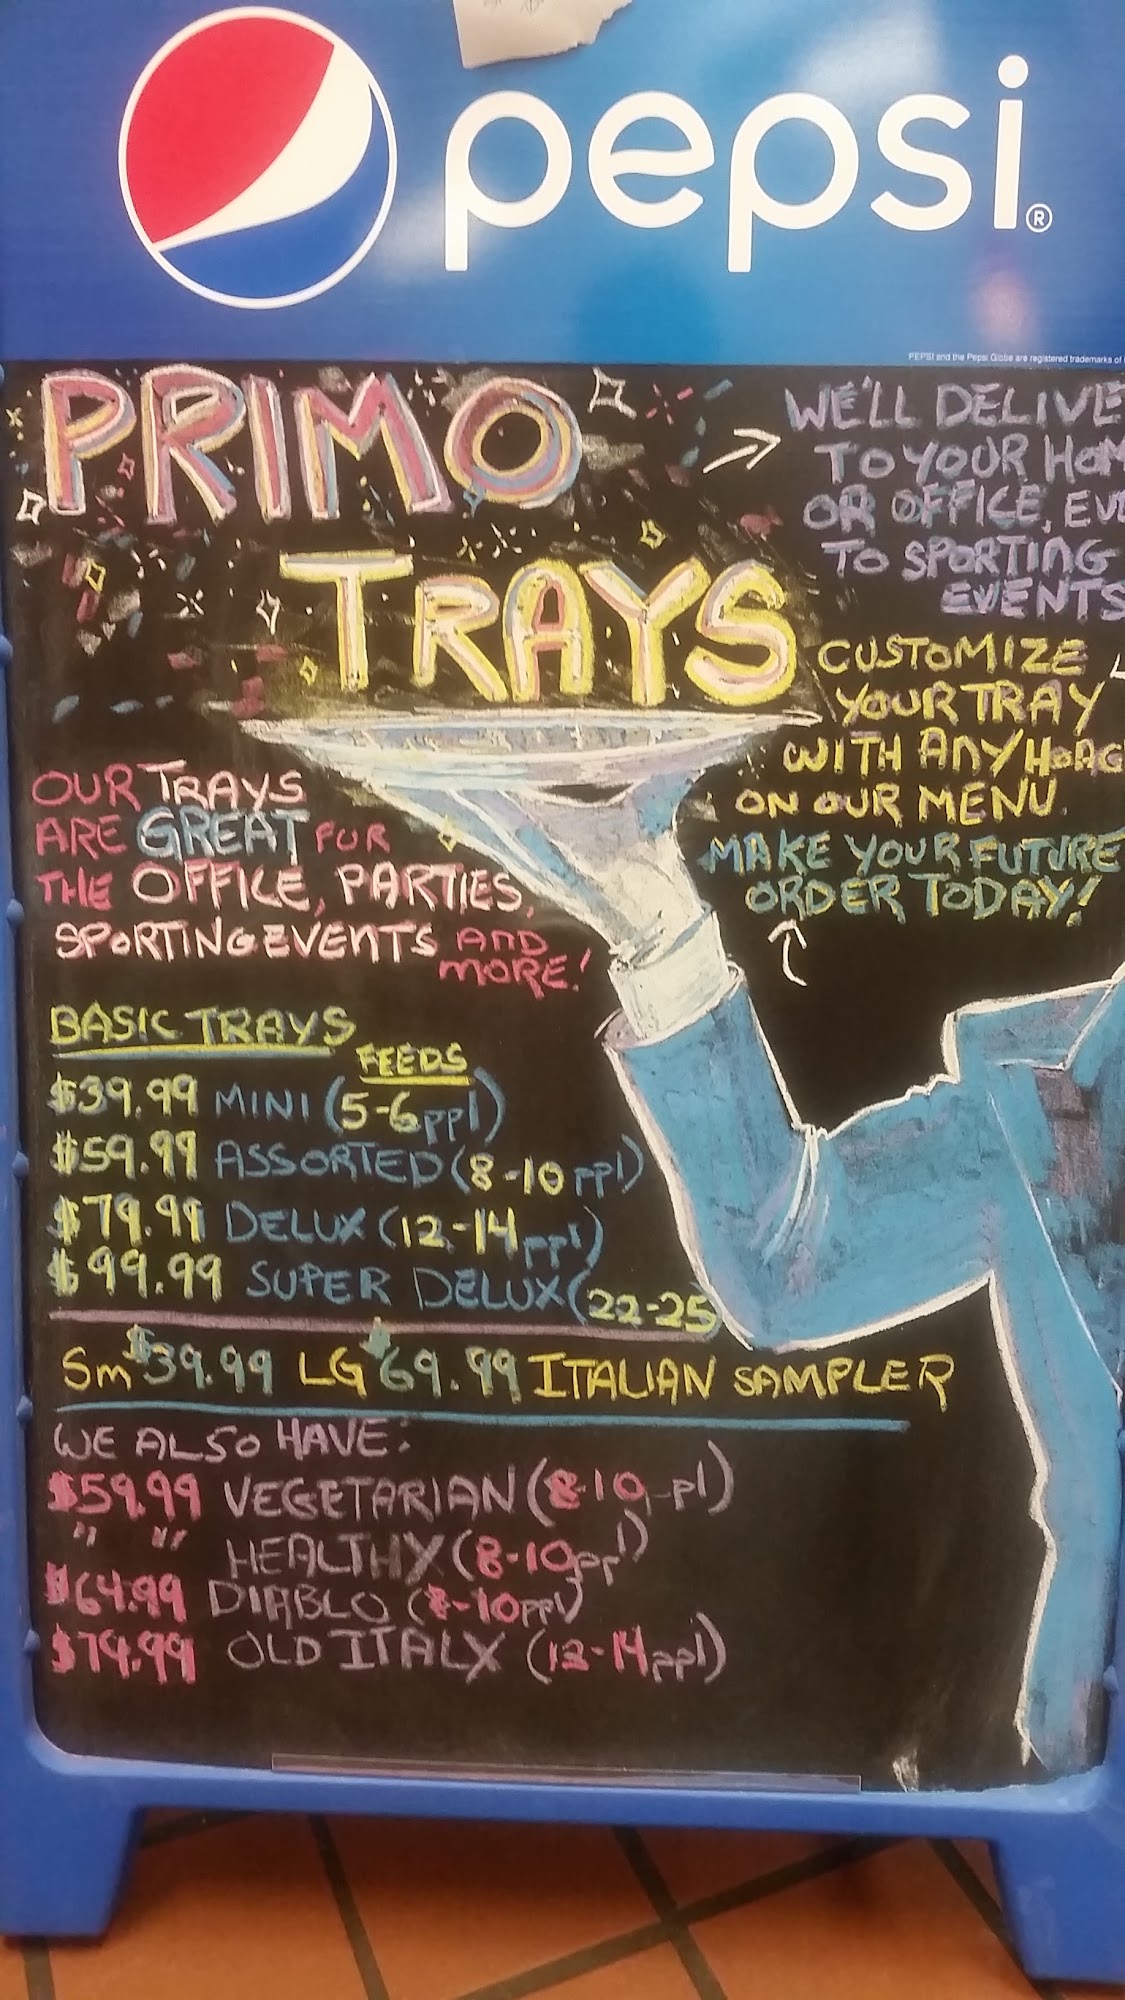 pepsi®
PEPSI and the Pepsi Globe are registered trademarks of
PRIMO
TRAYS
WE'LL DELIVE
TO YOUR HOM
OR OFFICE, EVE
TO SPORTING
EVENTS
CUSTOMIZE
YOUR TRAY
WITH ANY HOAG
ON OUR MENU.
MAKE YOUR FUTURE
ORDER TODAY!
OUR TRAYS
ARE GREAT FOR
THE OFFICE, PARTIES,
SPORTING EVENTS AND
MORE!
BASIC TRAYS
FEEDS
$39.99 MINI (5-6 ppl)
$59.99 ASSORTED (8-10 ppl)
$79.99 DELUX (12-14 ppl)
$99.99 SUPER DELUX (22-25
Sm $39.99 LG $69.99 ITALIAN SAMPLER
WE ALSO HAVE:
$59.99 VEGETARIAN (8-10 ppl)
" " HEALTHY (8-10 ppl)
$64.99 DIABLO (8-10 ppl)
$74.99 OLD ITALY (12-14 ppl)